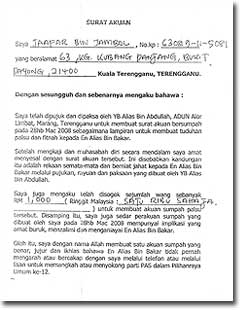 SURAT AKUAN
Saya JAAFAR BIN JAMBOL, No.kp: 630819-11-5081
yang beralamat 63, KG. KUBANG PANJANG, BUKIT
PAYONG, 21400 Kuala Terengganu, TERENGGANU.
Dengan sesungguh dan sebenarnya mengaku bahawa :
Saya telah dipujuk dan dipaksa oleh YB Alias Bin Abdullah, ADUN Alor
Limbat, Marang, Terengganu untuk membuat surat akuan bersumpah
pada 28hb Mac 2008 sebagaimana lampiran untuk membuat tuduhan
palsu dan fitnah kepada En Alias Bin Bakar.
Setelah mengkaji dan muhasabah diri secara mendalam saya amat
menyesal dengan surat akuan tersebut. Ini disebabkan kandungan
itu adalah rekaan semata-mata dan berniat jahat kepada En Alias Bin
Bakar melalui pujukan, rayuan dan paksaan yang dibuat oleh YB Alias
Bin Abdullah.
Saya juga mengaku telah disogok sejumlah wang sebanyak
RM 1,000 (Ringgit Malaysia : SATU RIBU SAHAJA,
) untuk membuat akuan sumpah palsu
tersebut. Disamping itu, saya juga sedar perakuan sumpah yang
dibuat oleh saya pada 28hb Mac 2008 mempunyai implikasi yang
amat buruk, menzalimi dan menganiayai En Alias Bin Bakar.
Oleh itu, saya dengan nama Allah membuat satu akuan sumpah yang
benar, jujur dan ikhlas bahawa En Alias Bin Bakar tidak pernah
mengarah atau bercakap dengan saya melalui telefon atau melalui
lisan untuk memangkah atau menyokong parti PAS dalam Pilihanraya
Umum ke-12.